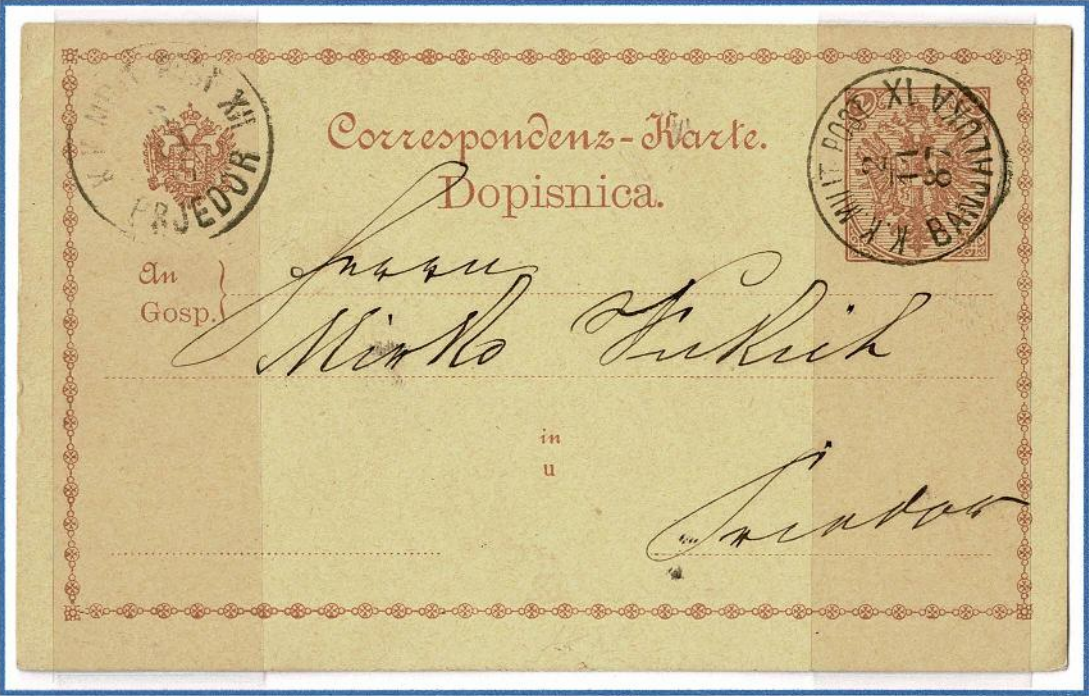 K.K. MILIT. POST XII
PRJEDOR
Correspondenz-Karte.
Dopisnica.
K.K. MILIT. POST XI
2
11
87
BANJALUKA
An
Gosp.
Herrn
Mirko Vukich
in
u
Priedor